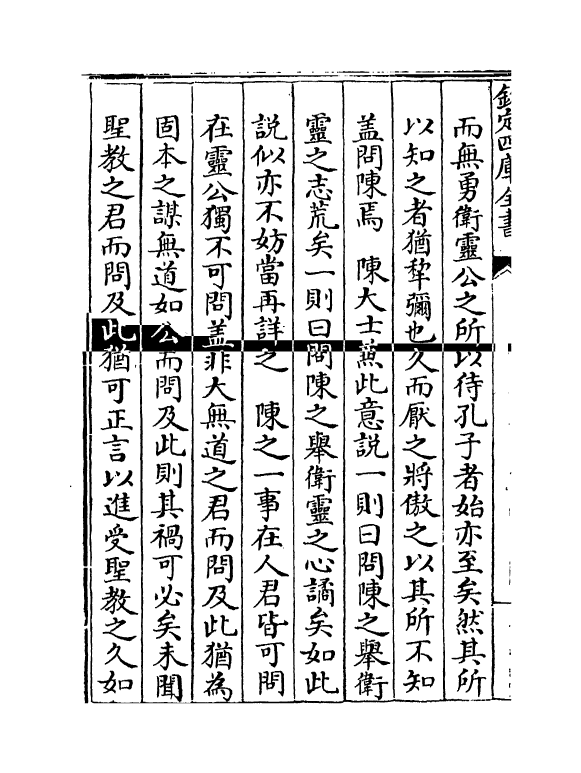 欽定四庫全書
而無勇衛靈公之所以待孔子者始亦至矣然其所
以知之者猶犂彌也久而厭之將傲之以其所不知
盖問陳焉　陳大士兼此意説一則曰問陳之舉衛
靈之志荒矣一則曰問陳之舉衛靈之心譎矣如此
説似亦不妨當再詳之　陳之一事在人君皆可問
在靈公獨不可問盖非大無道之君而問及此猶為
固本之謀無道如公而問及此則其禍可必矣未聞
聖教之君而問及此猶可正言以進受聖教之久如